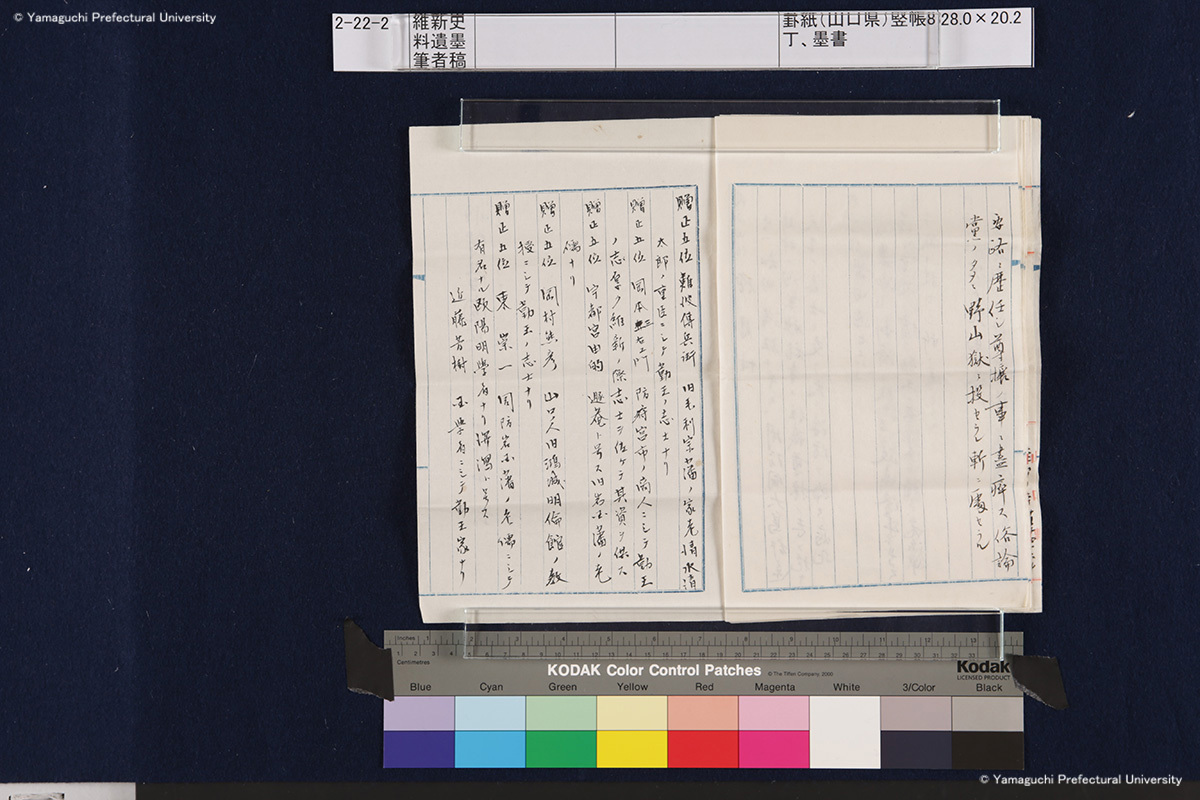 © Yamaguchi Prefectural University
2-22-2
維新史
料遺墨
筆者稿
罫紙(山口県)竪帳8
丁、墨書
28.0×20.2
要路ニ歴任シ尊攘ノ事ニ盡瘁ス俗論
党ノタメ野山獄ニ投セラレ斬ニ處セラル
贈正五位難波傳兵衛 旧毛利宗藩ノ家老清水清
太郎ノ重臣ニシテ勤王ノ志士ナリ
贈正五位 岡本三右エ門 防府宮市ノ商人ニシテ勤王
ノ志厚ク維新ノ際志士ヲ佐ケテ其資ヲ供ス
贈正五位 宇都宮由的 遯菴ト号ス旧岩国藩ノ名
儒ナリ
贈正五位 岡村熊彦 山口人旧鴻城明倫館ノ教
授ニシテ勤王ノ志士ナリ
贈正五位 東 崇一 周防岩国藩ノ名儒ニシテ
有名ナル陽明学者ナリ澤瀉ト号ス
近藤芳樹 国学者ニシテ勤王家ナリ
Inches
Centimetres
KODAK Color Control Patches
© The Tiffen Company, 2000
Kodak
LICENSED PRODUCT
Blue Cyan Green Yellow Red Magenta White 3/Color Black
© Yamaguchi Prefectural University